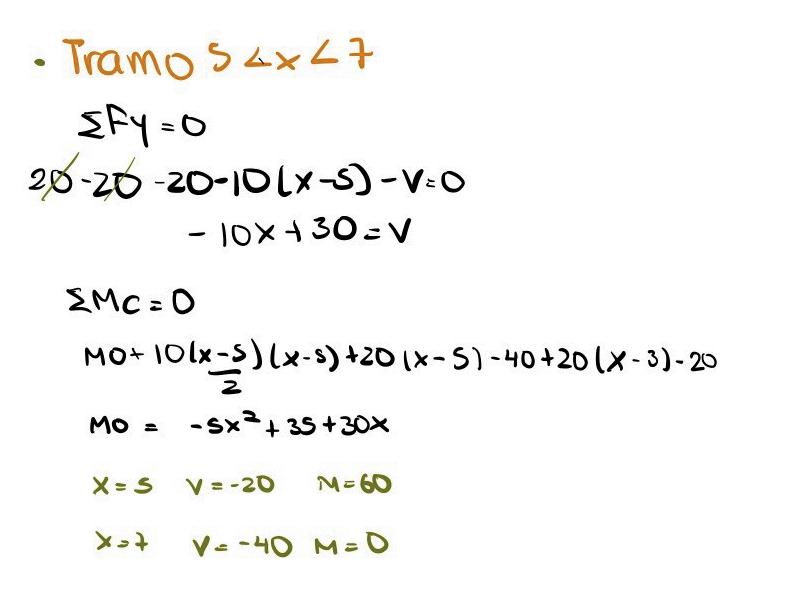 • Tramo 5 < x < 7
ΣFy = 0
20 - 20 - 20 - 10(x-5) - V = 0
- 10x + 30 = V
ΣMc = 0
M0 + 10(x-5)/2 (x-5) + 20(x-5) - 40 + 20(x-3) - 20
M0 = -5x² + 35 + 30x
x = 5 V = -20 M = 60
x = 7 V = -40 M = 0